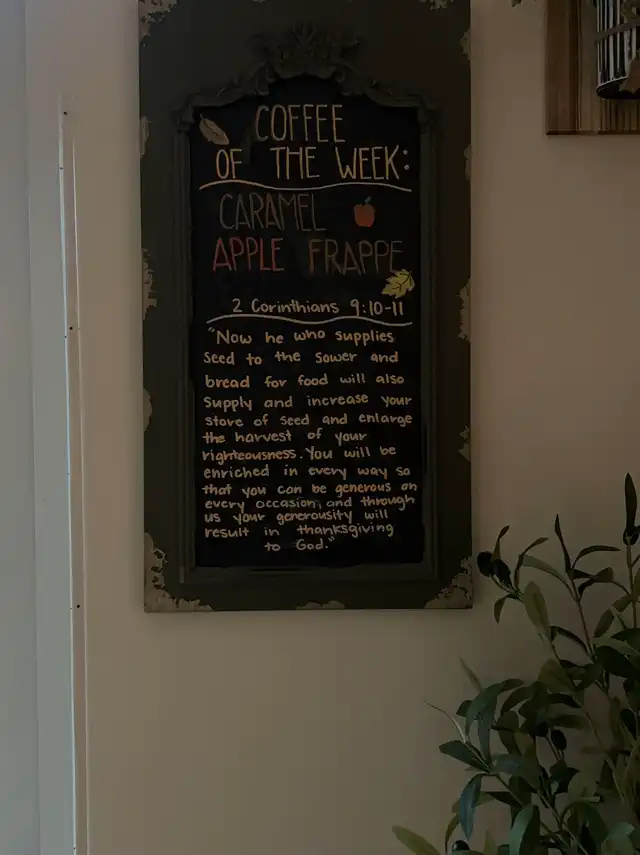 COFFEE
OF THE WEEK:
CARAMEL
APPLE FRAPPE
2 Corinthians 9:10-11
"Now he who supplies
seed to the sower and
bread for food will also
supply and increase your
store of seed and enlarge
the harvest of your
righteousness. You will be
enriched in every way so
that you can be generous on
every occasion, and through
us your generousity will
result in thanksgiving
to God."